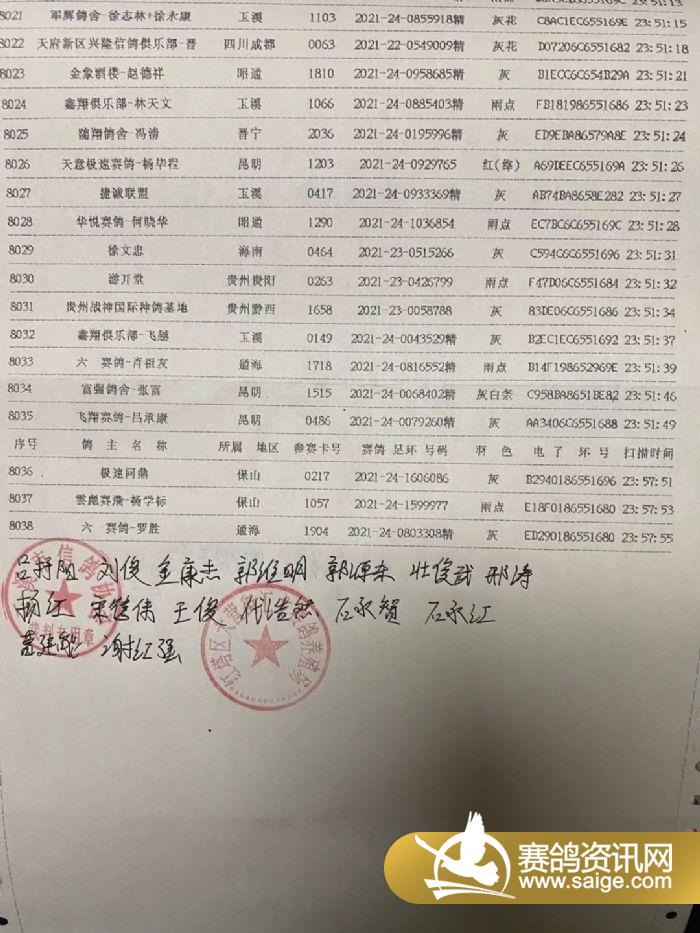 8021 军辉鸽舍-徐志林+徐永康 玉溪 1103 2021-24-0855918精 灰花 C8AC1EC655169E 23:51:15
8022 天府新区兴隆信鸽俱乐部-晋 四川成都 0063 2021-22-0549009精 灰花 D07206C6551682 23:51:18
8023 金象酒楼-赵德祥 昭通 1810 2021-24-0958685精 灰 B1ECC6C654B29A 23:51:21
8024 鑫翔俱乐部-林天文 玉溪 1066 2021-24-0885403精 雨点 FB181986551686 23:51:23
8025 随翔鸽舍-冯清 晋宁 2036 2021-24-0195996精 灰 ED9EBA86579A8E 23:51:24
8026 天意极速赛鸽-杨毕程 昆明 1203 2021-24-0929765 红(绛) A69DEEC655169A 23:51:26
8027 捷诚联盟 玉溪 0417 2021-24-0933369精 灰 AB74BA8658E282 23:51:27
8028 华悦赛鸽-何晓华 昭通 1290 2021-24-1036854 雨点 EC7BC6C655169C 23:51:28
8029 徐文忠 海南 0464 2021-23-0515266 灰 C594C6C6551696 23:51:31
8030 游开堂 贵州贵阳 0263 2021-23-0426799 雨点 F47D06C6551684 23:51:32
8031 贵州战神国际种鸽基地 贵州黔西 1658 2021-23-0058788 灰 83DE06C6551686 23:51:34
8032 鑫翔俱乐部-飞越 玉溪 0149 2021-24-0043529精 灰 B2EC1EC6551692 23:51:37
8033 六 赛鸽-肖祖友 通海 1718 2021-24-0816552精 雨点 B14F198652969E 23:51:39
8034 富强鸽舍-张富 昆明 1515 2021-24-0068402精 灰白条 C958BA8651BE82 23:51:46
8035 飞翔赛鸽-吕承康 昆明 0486 2021-24-0079260精 灰 AA3406C6551688 23:51:49
序号 鸽主名称 所属地区 参赛卡号 赛鸽足环号码 羽色 电子环号 扫描时间
8036 极速问鼎 保山 0217 2021-24-1606086 灰 B2940186551696 23:57:51
8037 云彪赛飞-杨学标 保山 1057 2021-24-1599977 雨点 E18F0186551680 23:57:53
8038 六 赛鸽-罗胜 通海 1904 2021-24-0803308精 灰 ED290186551680 23:57:55
刘俊 金康杰 郭维明 郭源东 杜俊武 邢涛
杨江 宋健伟 王俊 代浩然 石永智 石永江
谢红强
信鸽协
裁判专用章
红塔区大营街 鸽养殖场
赛鸽资讯网
www.saige.com